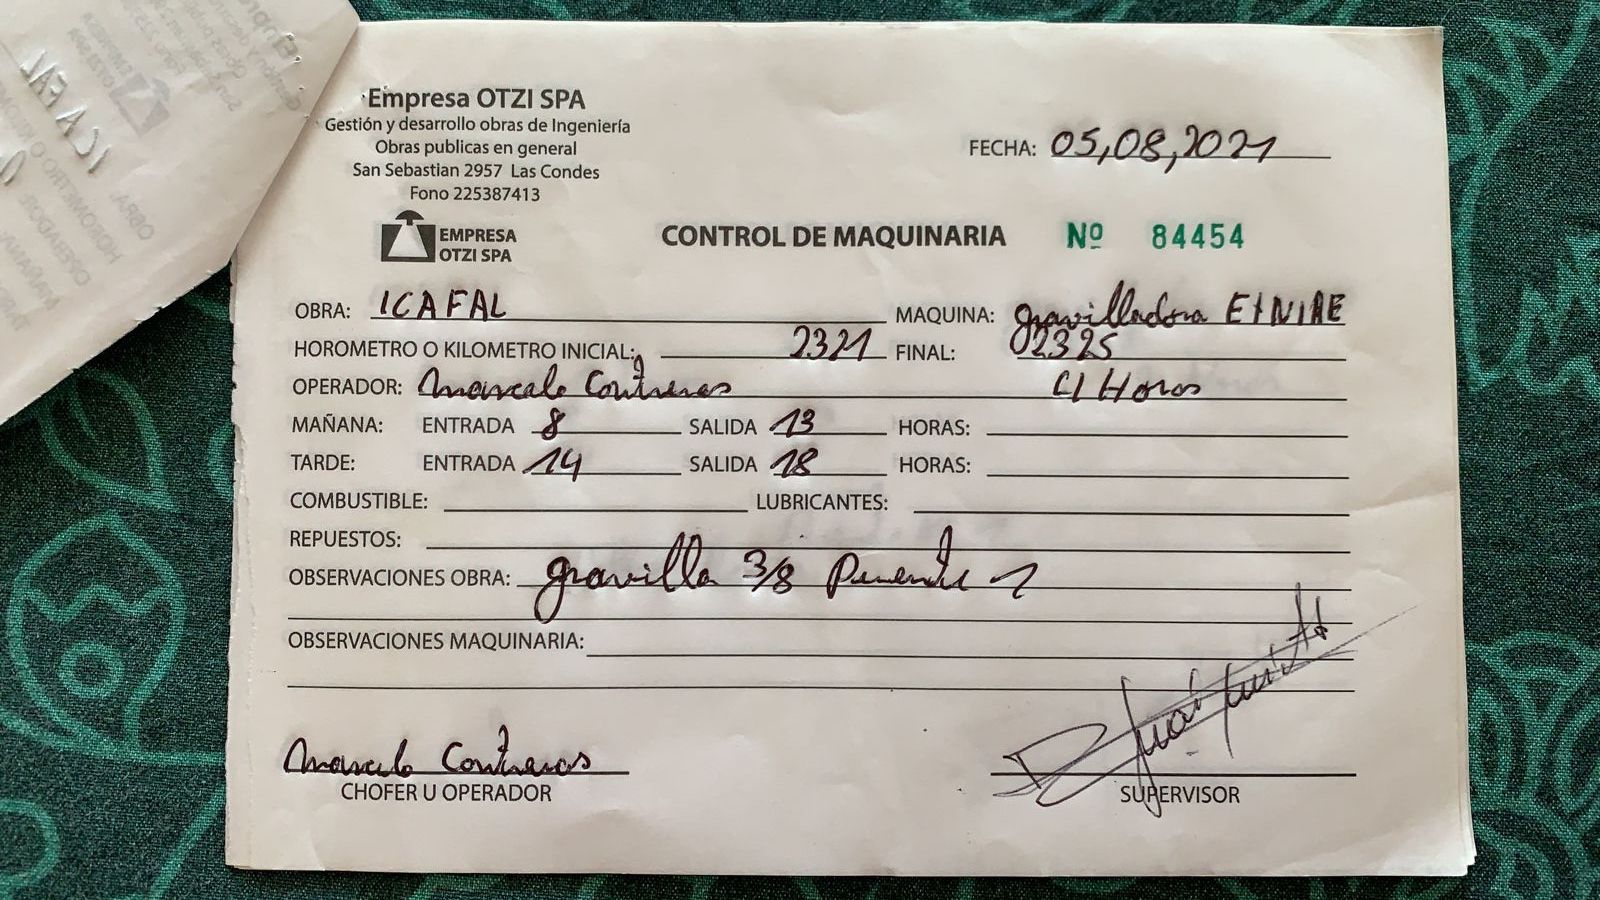 Empresa OTZI SPA
Gestión y desarrollo obras de Ingeniería
Obras publicas en general
San Sebastian 2957 Las Condes
Fono 225387413
FECHA: 05,08,2021
EMPRESA
OTZI SPA
CONTROL DE MAQUINARIA Nº 84454
OBRA: ICAFAL MAQUINA: gravilladora ETNIRE
HOROMETRO O KILOMETRO INICIAL: 2321 FINAL: 02325
OPERADOR: Marcelo Contreras 4 Horas
MAÑANA: ENTRADA 8 SALIDA 13 HORAS:
TARDE: ENTRADA 14 SALIDA 18 HORAS:
COMBUSTIBLE: LUBRICANTES:
REPUESTOS:
OBSERVACIONES OBRA: gravilla 3/8 Puente 1
OBSERVACIONES MAQUINARIA:
Marcelo Contreras
CHOFER U OPERADOR SUPERVISOR